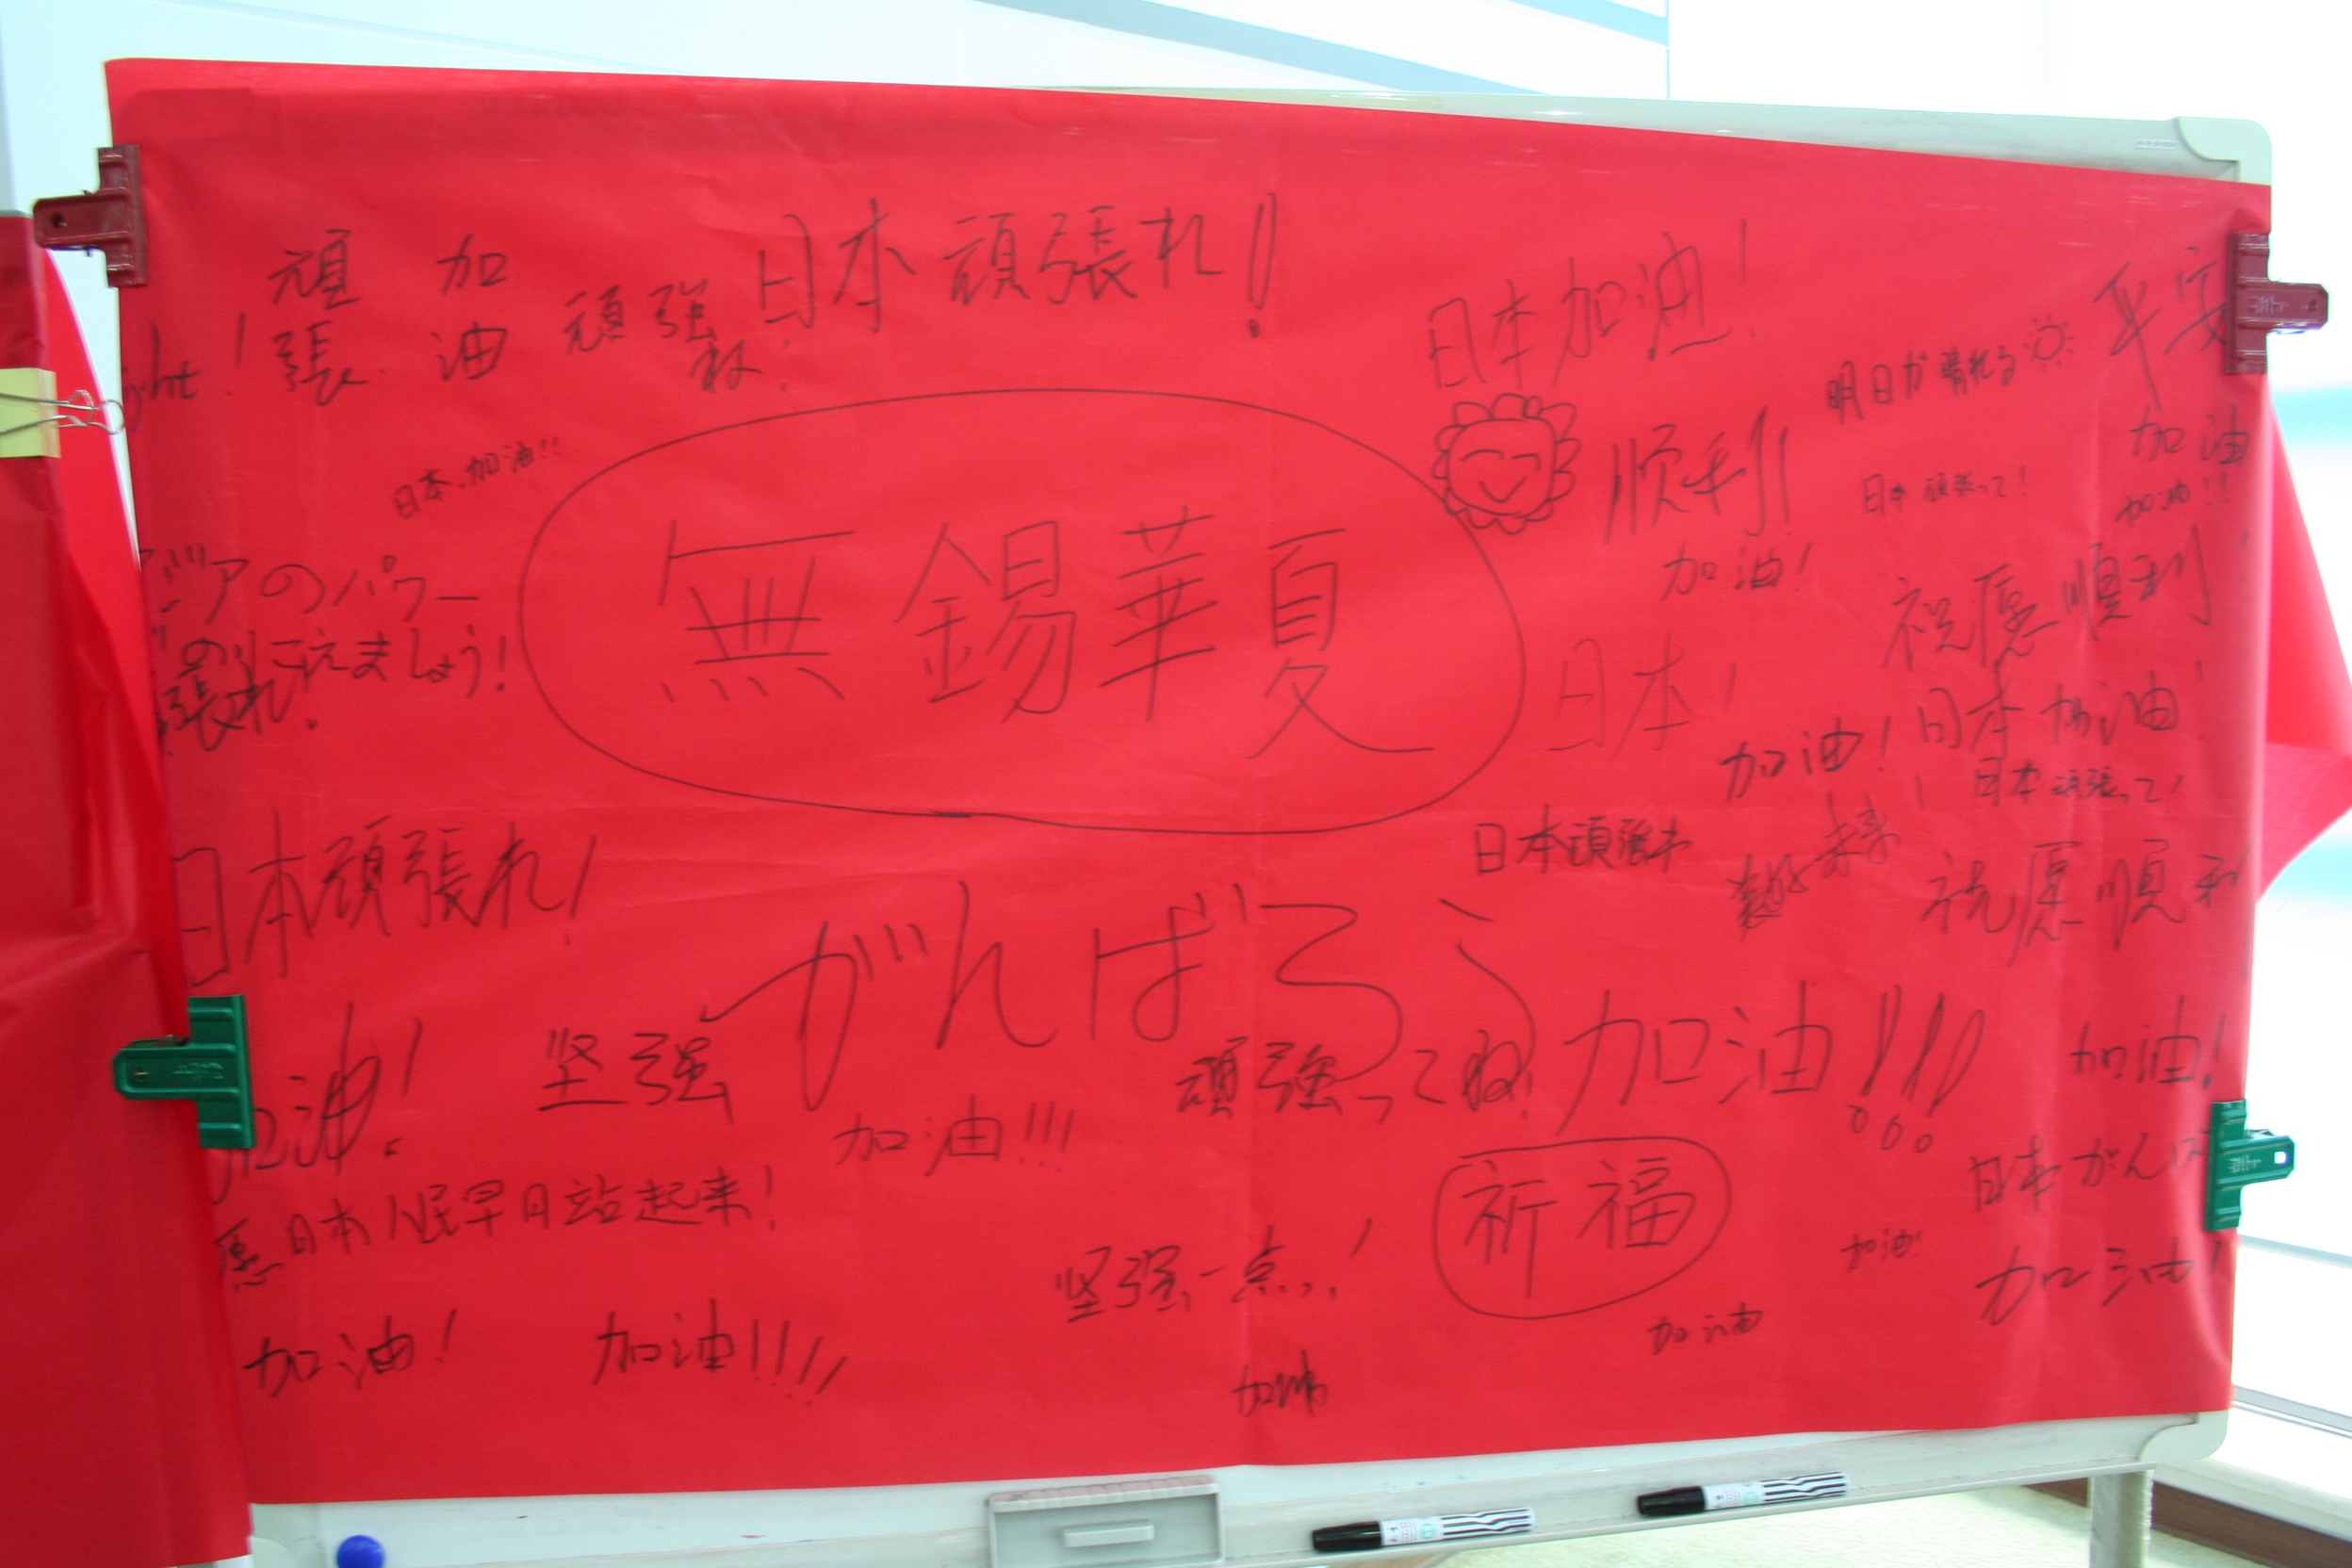 日本頑張れ!!
頑張
加油
頑強
ね!
ght!
日本加油!
平安
明日が晴れる
日本、加油!!
順利!
加油
日本 頑張って!
加油!!
加油!
ジアのパワー
のりこえましょう!
張れ!
無錫華夏
祝愿順利!
日本!
日本加油!
加油!
日本頑張って!
日本頑張れ!
日本頑張れ
祝愿順利
がんばろう
加油!
坚强
頑強ってね!
加油!!!
加油!
加油!!!
日本がんば
愿日本人民早日站起来!
祈福
坚强一点!
加油!
加油!
加油!
加油!!!!
加油
加油